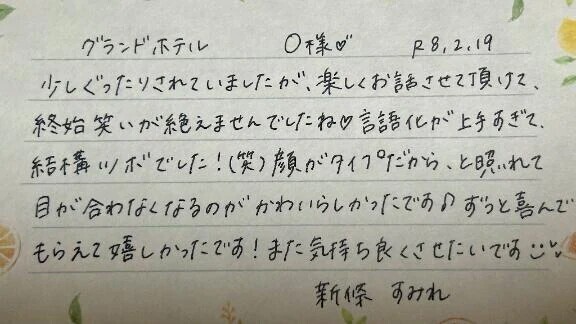 グランドホテル　〇様♡　R8.2.19
少しぐったりされていましたが、楽しくお話させて頂けて、
終始笑いが絶えませんでしたね♡言語化が上手すぎて、
結構ツボでした!(笑)顔がタイプだから、と照れて
目が合わなくなるのがかわいらしかったです♪ずっと喜んで
もらえて嬉しかったです!また気持ち良くさせたいです
新條 すみれ